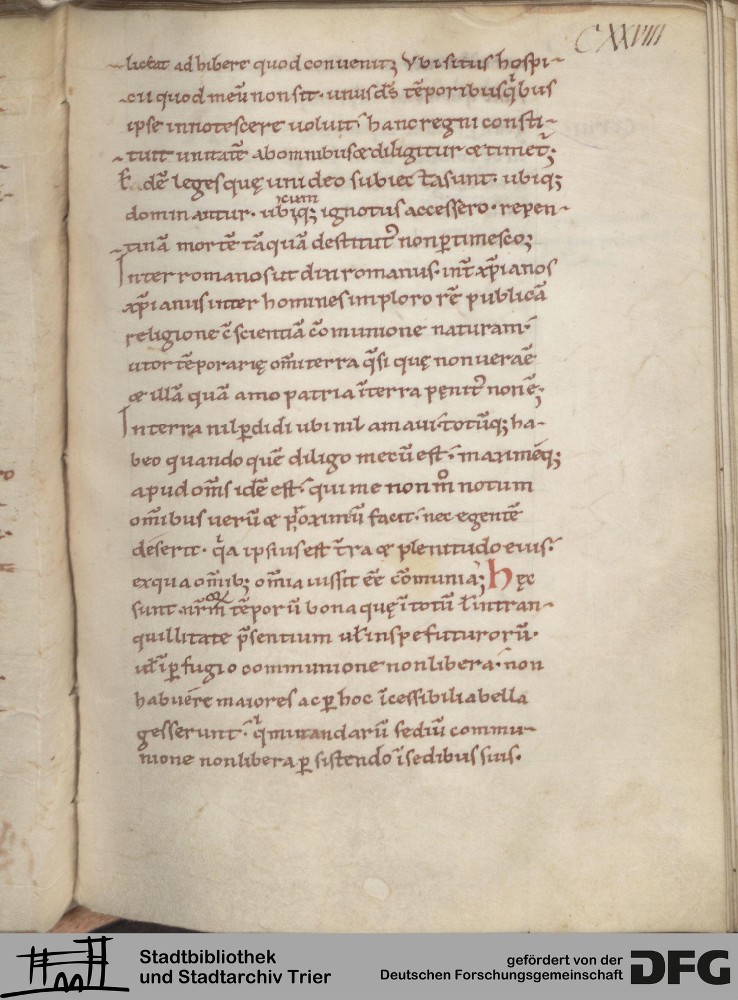 CXXVIII
licitat adhibere quod convenit; Vbi situs hospi-
cii quod meū non sit. unus d̄s tēporibus q̇bus
ipse innotescere uoluit. hanc regni consti-
tuit unitatē ab omnibus & diligitur & timet̄;
dē leges quę uni deo subiectę sunt. ubiq;
dominantur. ubiq; cum ignotus accessero. repen-
tinā mortē tāquā destitut᷒ non p̄timesco;
Inter romanos ut dixi romanus. int̄ xp̄ianos
xp̄ianus inter homines imploro rē publicā
religione c̄scientiā cōmunione naturam.
utor tēporarię om̄i terra q̄si quę non uera ē
& illā quā amo patria ī terra pęnit᷒ non ē;
In terra nil p̄didi ubi nil amaui. totūq; ha-
beo quando quē diligo mecū est. maximēq;
apud om̄s idē est. qui me non m̊ notum
om̄ibus uerū & p̄oximū facit. nec egentē
deserit. q̇a ipsius est t̄ra & plenitudo eius.
ex qua om̄ib; om̄ia iussit eē cōmunia; hęc
sunt nr̄m tēporū bona quę ī totū ł in tran-
quillitate p̄sentium uł in spe futurorū.
uł ī p̄fugio communione non libera. non
habuēre maiores ac p̄ hoc īcessibilia bella
gesserunt. q̇ mutandarū sediū commu-
nione non libera p̄sistendo ī sedibus suis.
Stadtbibliothek
und Stadtarchiv Trier
gefördert von der
Deutschen Forschungsgemeinschaft
DFG